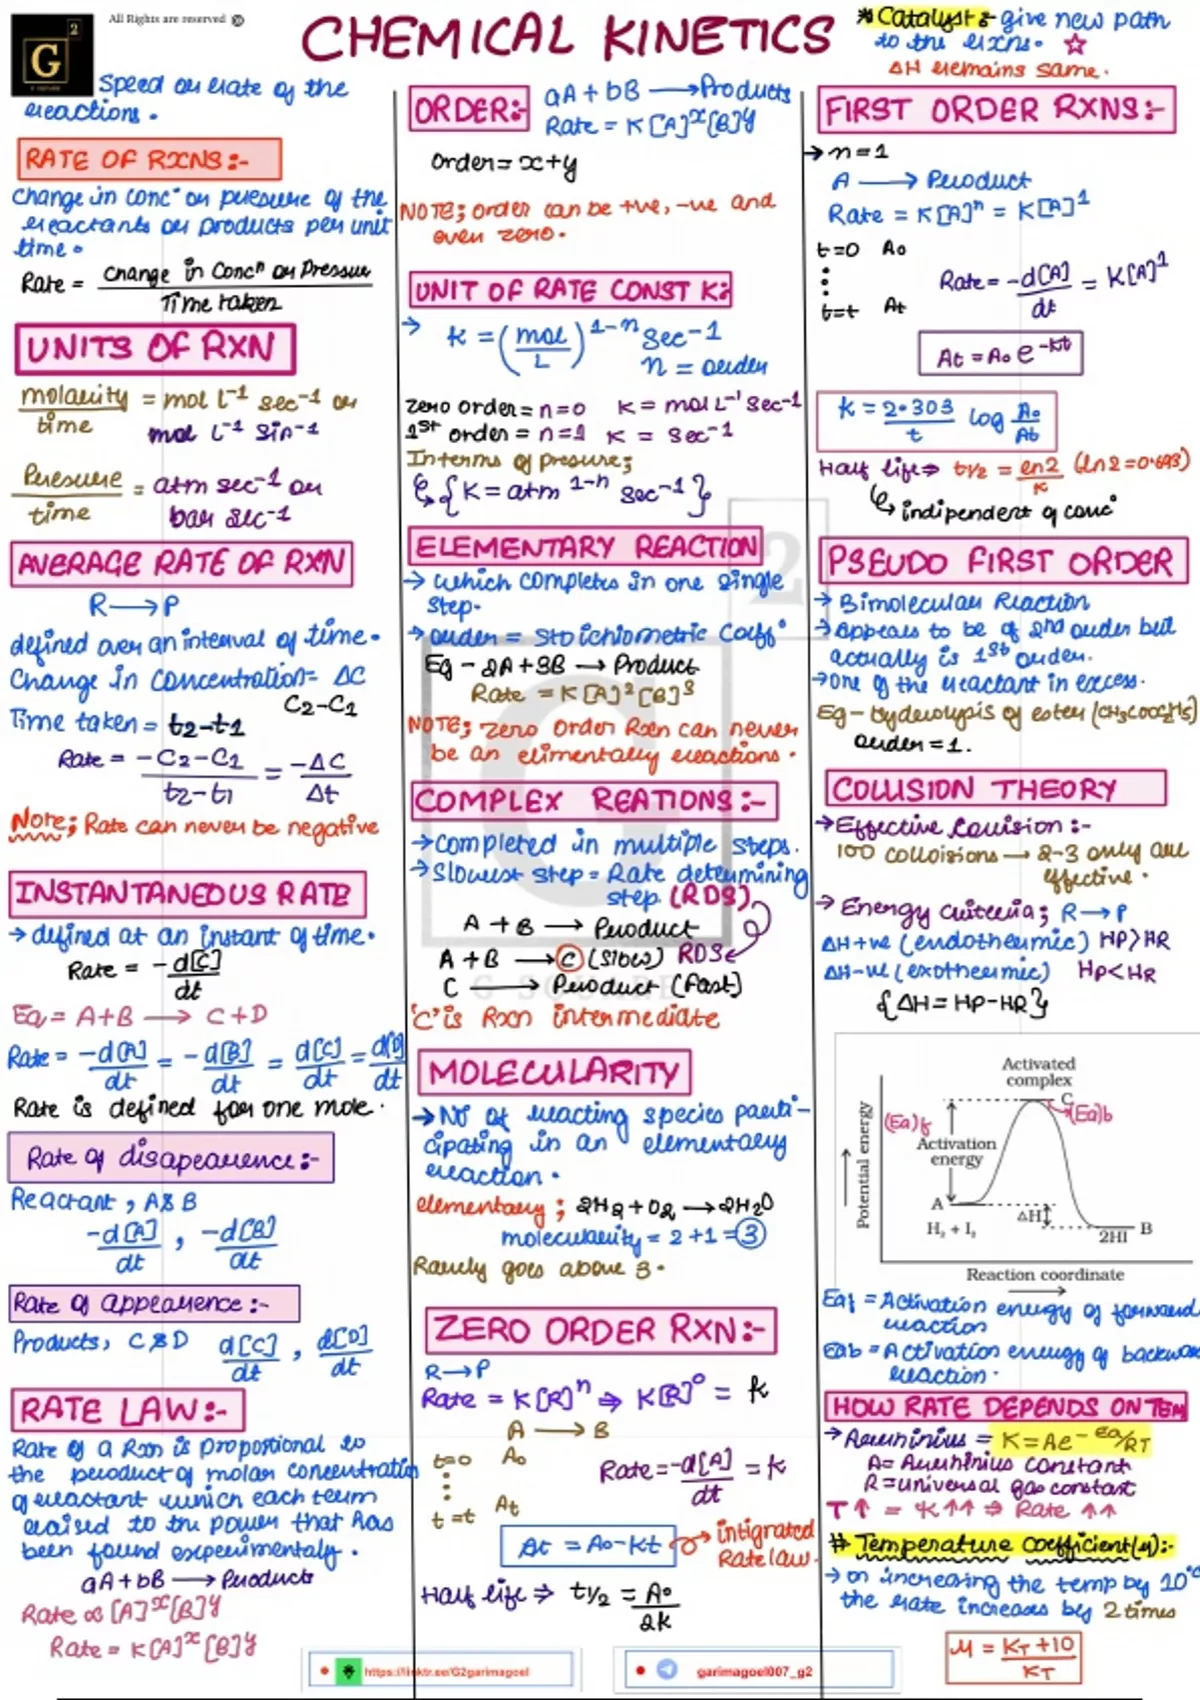 G 2
All Rights are reserved ©
CHEMICAL KINETICS
* Catalyst :- give new path
to the rxns. ☆
ΔH remains same.
Speed or rate of the
reactions.
RATE OF RXNS:-
Change in Concⁿ or pressure of the
reactants or products per unit
time.
Rate = Change in Concⁿ or Pressure / Time taken
UNITS OF RXN
molarity / time = mol L⁻¹ sec⁻¹ or
mol L⁻¹ min⁻¹
Pressure / time = atm sec⁻¹ or
bar sec⁻¹
AVERAGE RATE OF RXN
R → P
defined over an interval of time.
Change in concentration = ΔC
C2-C1
Time taken = t2-t1
Rate = -C2-C1 / t2-t1 = -ΔC / Δt
Note; Rate can never be negative
INSTANTANEOUS RATE
→ defined at an instant of time.
Rate = -d[C] / dt
Eq = A+B → C+D
Rate = -d[A]/dt = -d[B]/dt = d[C]/dt = d[D]/dt
Rate is defined for one mole.
Rate of disapearence:-
Reactant, A & B
-d[A]/dt , -d[B]/dt
Rate of appearence:-
Products, C & D d[C]/dt , d[D]/dt
RATE LAW:-
Rate of a Rxn is propotional to
the product of molar concentration
of reactant which each term
raised to the power that has
been found experimentaly.
aA+bB → Products
Rate ∝ [A]ˣ[B]ʸ
Rate = K[A]ˣ[B]ʸ
ORDER:- aA + bB → Products
Rate = K[A]ˣ[B]ʸ
Order = x+y
NOTE; order can be +ve, -ve and
even zero.
UNIT OF RATE CONST K:
→ K = (mol / L)¹⁻ⁿ sec⁻¹
n = order
Zero order = n=0 K = mol L⁻¹ sec⁻¹
1st order = n=1 K = sec⁻¹
In terms of presure;
↳ {K = atm¹⁻ⁿ sec⁻¹}
ELEMENTARY REACTION
→ which completes in one single
step.
→ order = stoichiometric coeff.
Eg - 2A+3B → Product
Rate = K[A]²[B]³
NOTE; zero order Rxn can never
be an elimentally reactions.
COMPLEX REATIONS:-
→ Completed in multiple steps.
→ Slowest step = Rate determining
step (RDS)
A + B → Product
A + B → C (slow) RDS
C → Product (fast)
'C' is Rxn intermediate
G SQUARE
MOLECULARITY
→ No of reacting species parti-
cipating in an elementary
reaction.
elementary; 2H2 + O2 → 2H2O
molecularity = 2+1 = 3
Rarely goes above 3.
ZERO ORDER RXN:-
R → P
Rate = K[R]ⁿ ⇒ K[R]⁰ = K
A → B
t=0 A₀
t=t At
Rate = -d[A]/dt = K
At = A₀-Kt → intigrated
Rate law.
Half life ⇒ t½ = A₀ / 2K
FIRST ORDER RXNS:-
→ n=1
A → Product
Rate = K[A]ⁿ = K[A]¹
t=0 A₀
t=t At
Rate = -d[A]/dt = K[A]¹
At = A₀ e⁻ᴷᵗ
K = 2.303 / t log A₀ / At
Half life ⇒ t½ = ln2 / K (ln2 = 0.693)
↳ indipendent of concⁿ
PSEUDO FIRST ORDER
→ Bimolecular Reaction
→ Appears to be of 2nd order but
actually is 1st order.
→ one of the reactant in excess.
Eg - hydrolysis of ester (CH3COOC2H5)
order = 1.
COLLISION THEORY
→ Effective Collision:-
100 colloisions → 2-3 only are
effective.
→ Energy criteria; R → P
ΔH +ve (endothermic) HP > HR
ΔH -ve (exothermic) HP < HR
{ΔH = HP - HR}
Activated
complex
C
(Ea)f
(Ea)b
Activation
energy
Potential energy
A
H₂ + I₂
ΔH
B
2HI
Reaction coordinate
Eaf = Activation energy of forward
reaction
Eab = Activation energy of backwa
reaction.
HOW RATE DEPENDS ON TEM
→ Arrhinius = K = Ae^-Ea/RT
A = Arrhinius constant
R = universal gas constant
T↑ = K↑↑ ⇒ Rate ↑↑
# Temperature coefficient(μ):-
→ on increasing the temp by 10°C
the rate increases by 2 times
μ = KT+10 / KT
https://linktr.ee/G2garimagoel
garimagoel007_g2